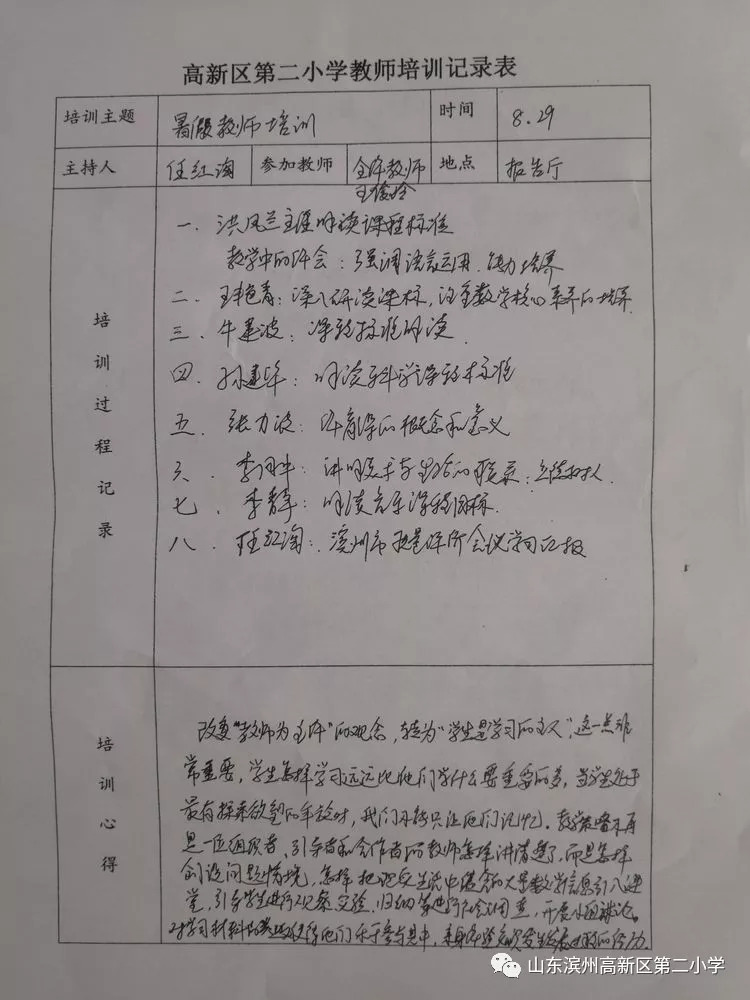 高新区第二小学教师培训记录表
培训主题 暑假教师培训 时间 8.29
主持人 任红淘 参加教师 全体教师 地点 报告厅
培训过程记录
一、洪凤兰主任解读课程标准
教学中的体会：强调语言运用、能力培养
二、王艳青：深入研读课标，注重数学核心素养的培养
三、牛建波：课程标准解读
四、孙建华：解读科学课程标准
五、张力波：体育课的概念和意义
六、李 讲明美术与生活的联系：立德树人
七、李青：解读音乐课程目标
八、任红淘：滨州市 会议学习汇报
培训心得
改变“教师为主体”的观念，转为“学生是学习的主人”，这一点非
常重要，学生怎样学习远远比他们学什么要重要的多，当学生处于
最有探索欲望的年龄时，我们不能只让他们记忆。教学 不再
是一 组织者、引导者和合作者的教师怎样讲清楚了，而是怎样
创设问题情境，怎样把现实生活中 的大量数学信息引入课
堂，引导学生进行观察、实验、归纳 调查，开展小组讨论。
对学习材料 他们乐于参与其中，
山东滨州高新区第二小学